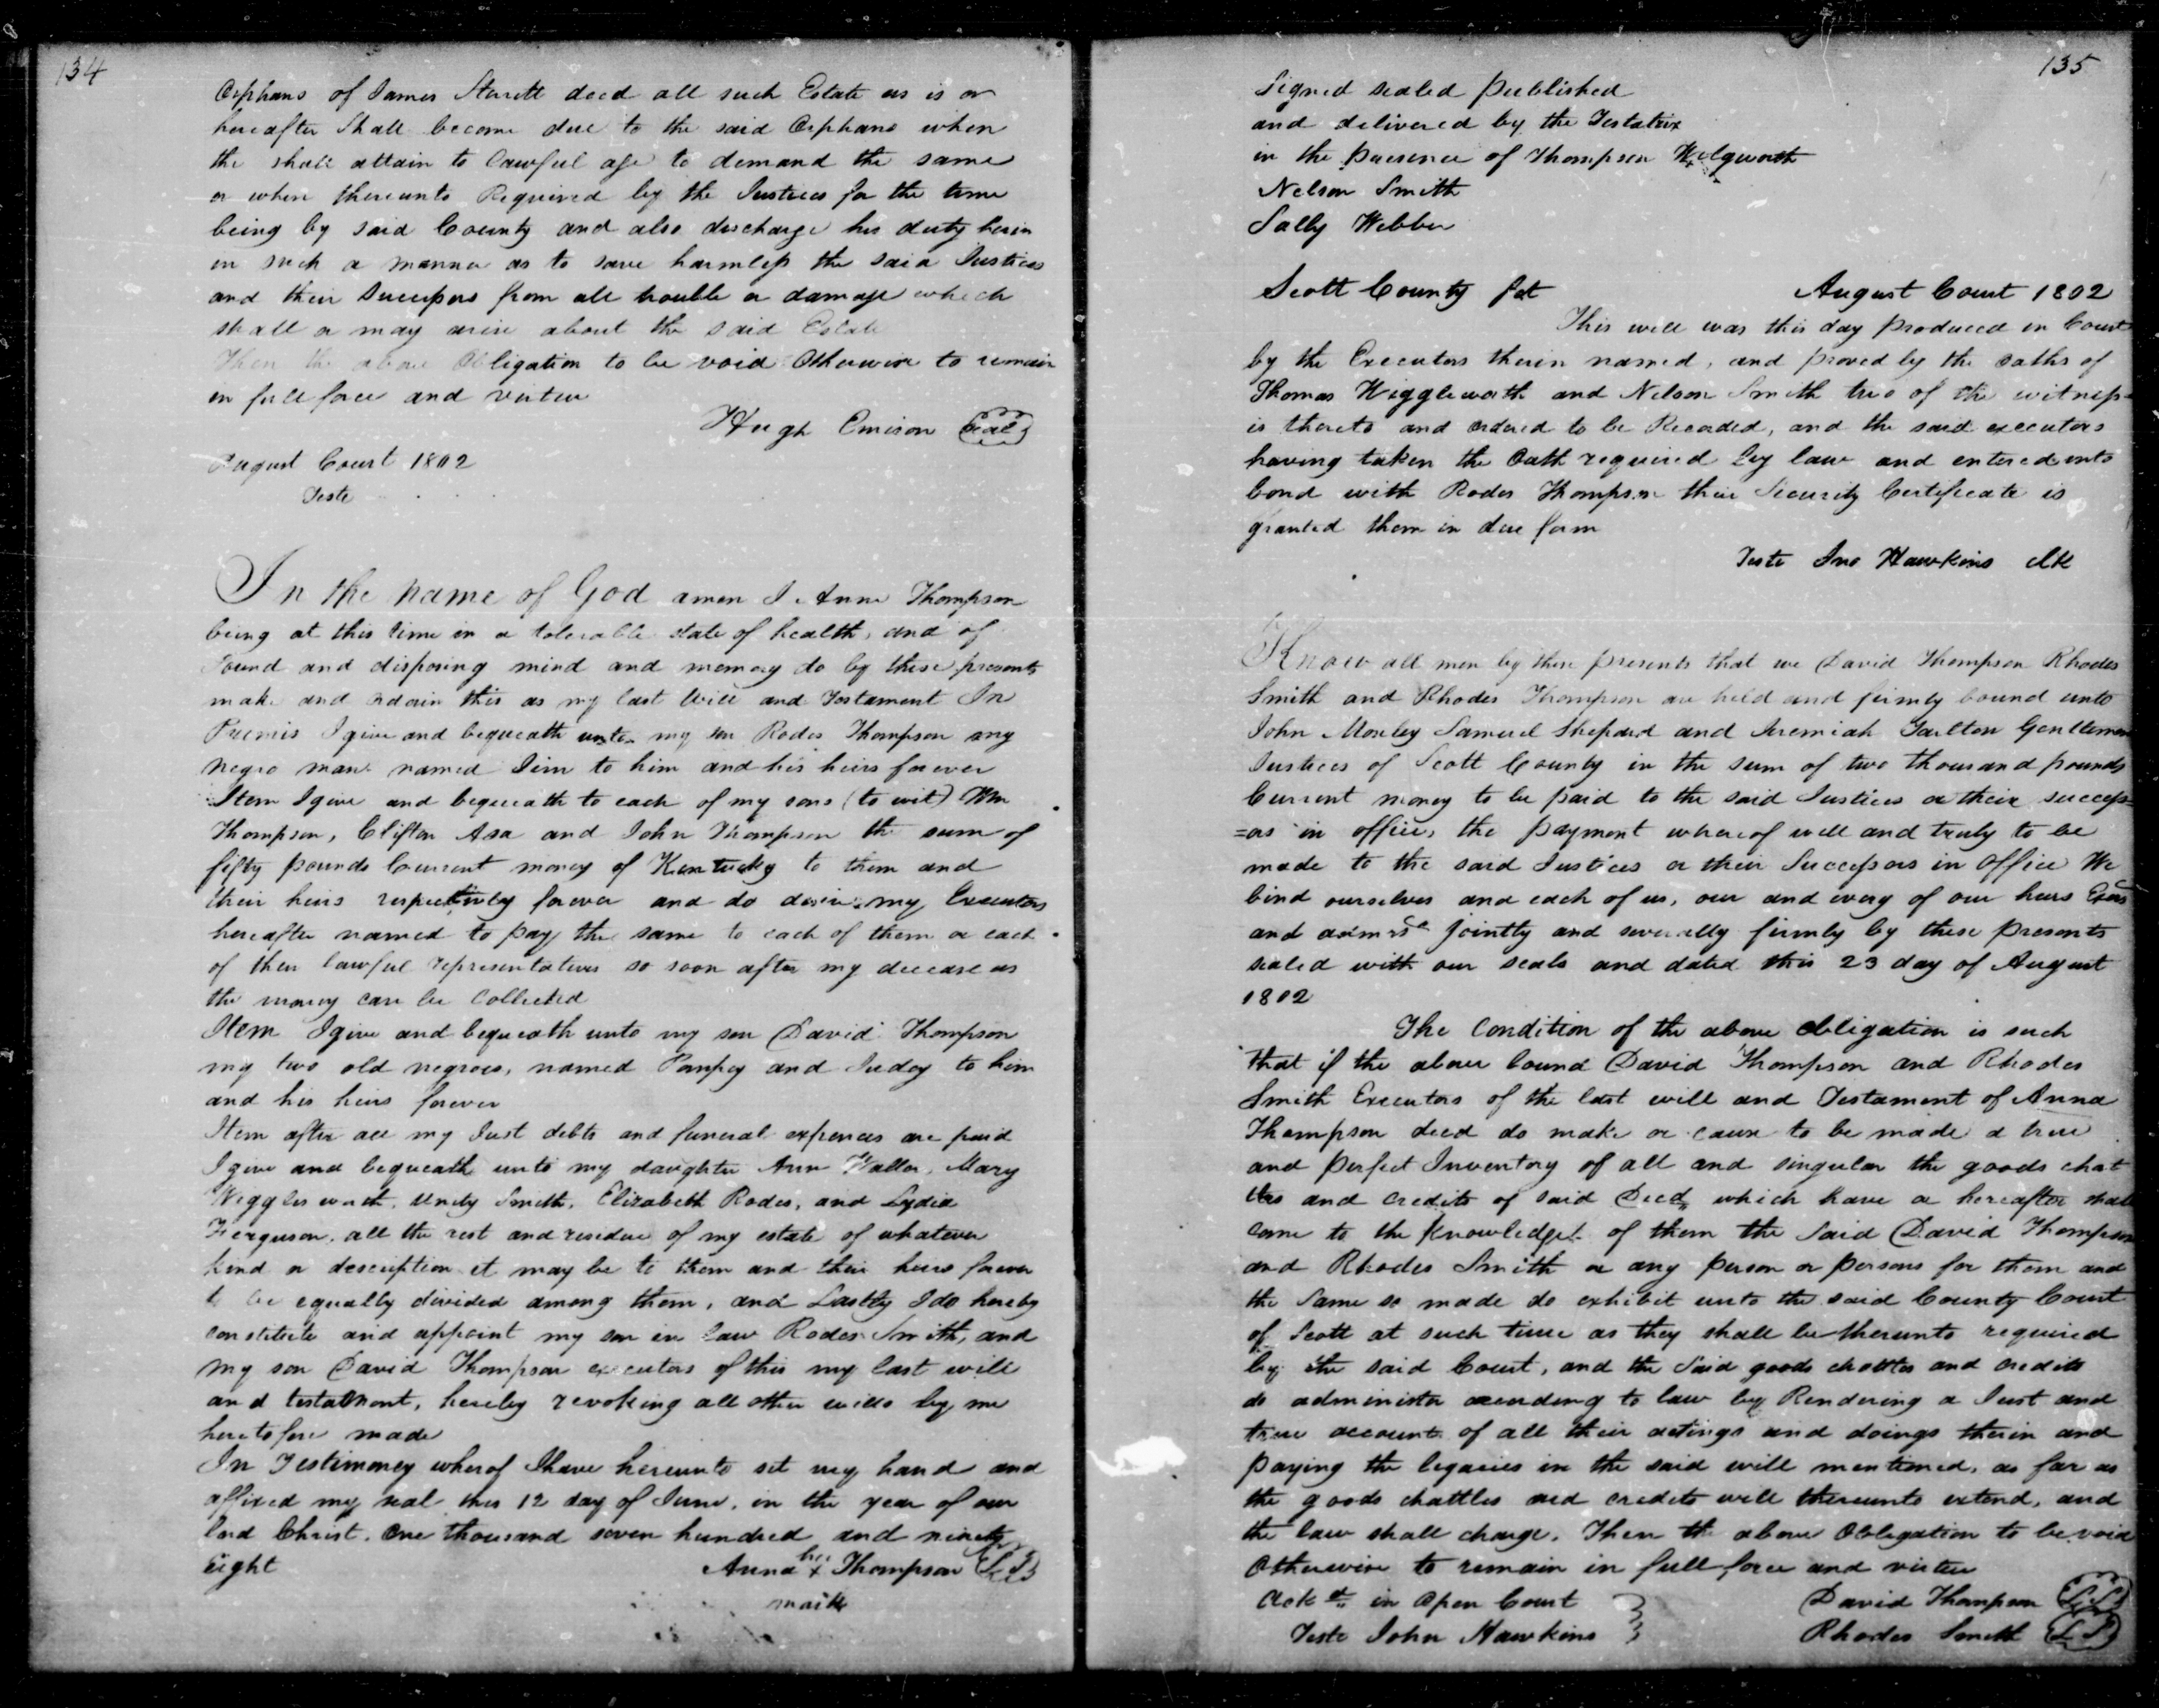 134
Orphans of James Sterett decd all such Estate as is or
hereafter Shall become due to the said Orphans when
the shall attain to lawful age to demand the same
or when thereunto Required by the Justices for the time
being by said County and also discharge his duty herin
in such a manner as to save harmless the said Justices
and their Successors from all trouble or damage which
shall or may arise about the said Estate
Then the above Obligation to be void Otherwise to remain
in full force and virtue
Hugh Emison Seal
August Court 1802
Teste
In the name of God amen I Anna Thompson
being at this time in a tolerable state of health, and of
Sound and disposing mind and memory do by these presents
make and ordain this as my last Will and Testament In
Primis I give and bequeath unto my son Rodes Thompson my
negro man named Jim to him and his heirs forever
Item I give and bequeath to each of my sons (to wit) Wm
Thompson, Clifton Asa and John Thompson the sum of
fifty pounds Current money of Kentucky to them and
their heirs respectively forever and do desire my Executors
hereafter named to pay the same to each of them or each
of their lawful representatives so soon after my decease as
the money can be Collected
Item I give and bequeath unto my son David Thompson
my two old negroes, named Pompey and Judey to him
and his heirs forever
Item after all my Just debts and funeral expences are paid
I give and bequeath unto my daughter Ann Waller, Mary
Wiggles worth, Unity Smith, Elizabeth Rodes, and Lydia
Ferguson, all the rest and residue of my estate of whatever
kind or description it may be to them and their heirs forever
to be equally divided among them, and Lastly I do hereby
constitute and appoint my son in law Rodes Smith, and
my son David Thompson executors of this my last will
and testament, hereby revoking all other wills by me
heretofore made
In Testimoney wherof I have hereunto set my hand and
affixed my seal this 12 day of June, in the year of our
Lord Christ. One thousand seven hundred and ninety
Eight
her
Anna x Thompson LS
mark
135
Signed sealed published
and delivered by the Testatrix
in the presence of Thompson
Nelson Smith
Sally Webber
Scott County Sct August Court 1802
This will was this day produced in Court
by the Executors therin named, and proved by the oaths of
Thomas Wiggleworth and Nelson Smith two of the witness=
es thereto and ordered to be Recorded, and the said executors
having taken the Oath required by law and entered into
bond with Rodes Thompson their Security Certificate is
granted them in due form
Teste Jno Hawkins Clk
Know all men by these presents that we David Thompson Rhodes
Smith and Rhodes Thompson are held and firmly bound unto
John Mosley Samuel Shepard and Jeremiah Tarlton Gentlemen
Justices of Scott County in the sum of two thousand pounds
Current money to be paid to the said Justices or their success=
=ors in office, the payment whereof well and truly to be
made to the said Justices or their Successors in office We
bind ourselves and each of us, our and every of our heirs Exors
and admrs jointly and severally firmly by these presents
sealed with our seals and dated this 23 day of August
1802
The Condition of the above obligation is such
that if the above bound David Thompson and Rhodes
Smith Executors of the last will and Testament of Anna
Thompson decd do make or cause to be made a true
and perfect Inventory of all and singular the goods chat
tles and credits of said Decd, which have or hereafter shall
come to the knowledge of them the said David Thompson
and Rhodes Smith or any person or persons for them and
the same so made do exhibit unto the said County Court
of Scott at such time as they shall be therunto required
by the said Court, and the said goods chattles and credits
do administer according to law by Rendering a Just and
true account of all their actings and doings therin and
paying the legacies in the said will mentioned, as far as
the goods chattles and credits will thereunto extend, and
the law shall charge. Then the above Obligation to be void
Otherwise to remain in full force and virtue
Ackd in Open Court David Thompson LS
Teste John Hawkins Rhodes Smith LS